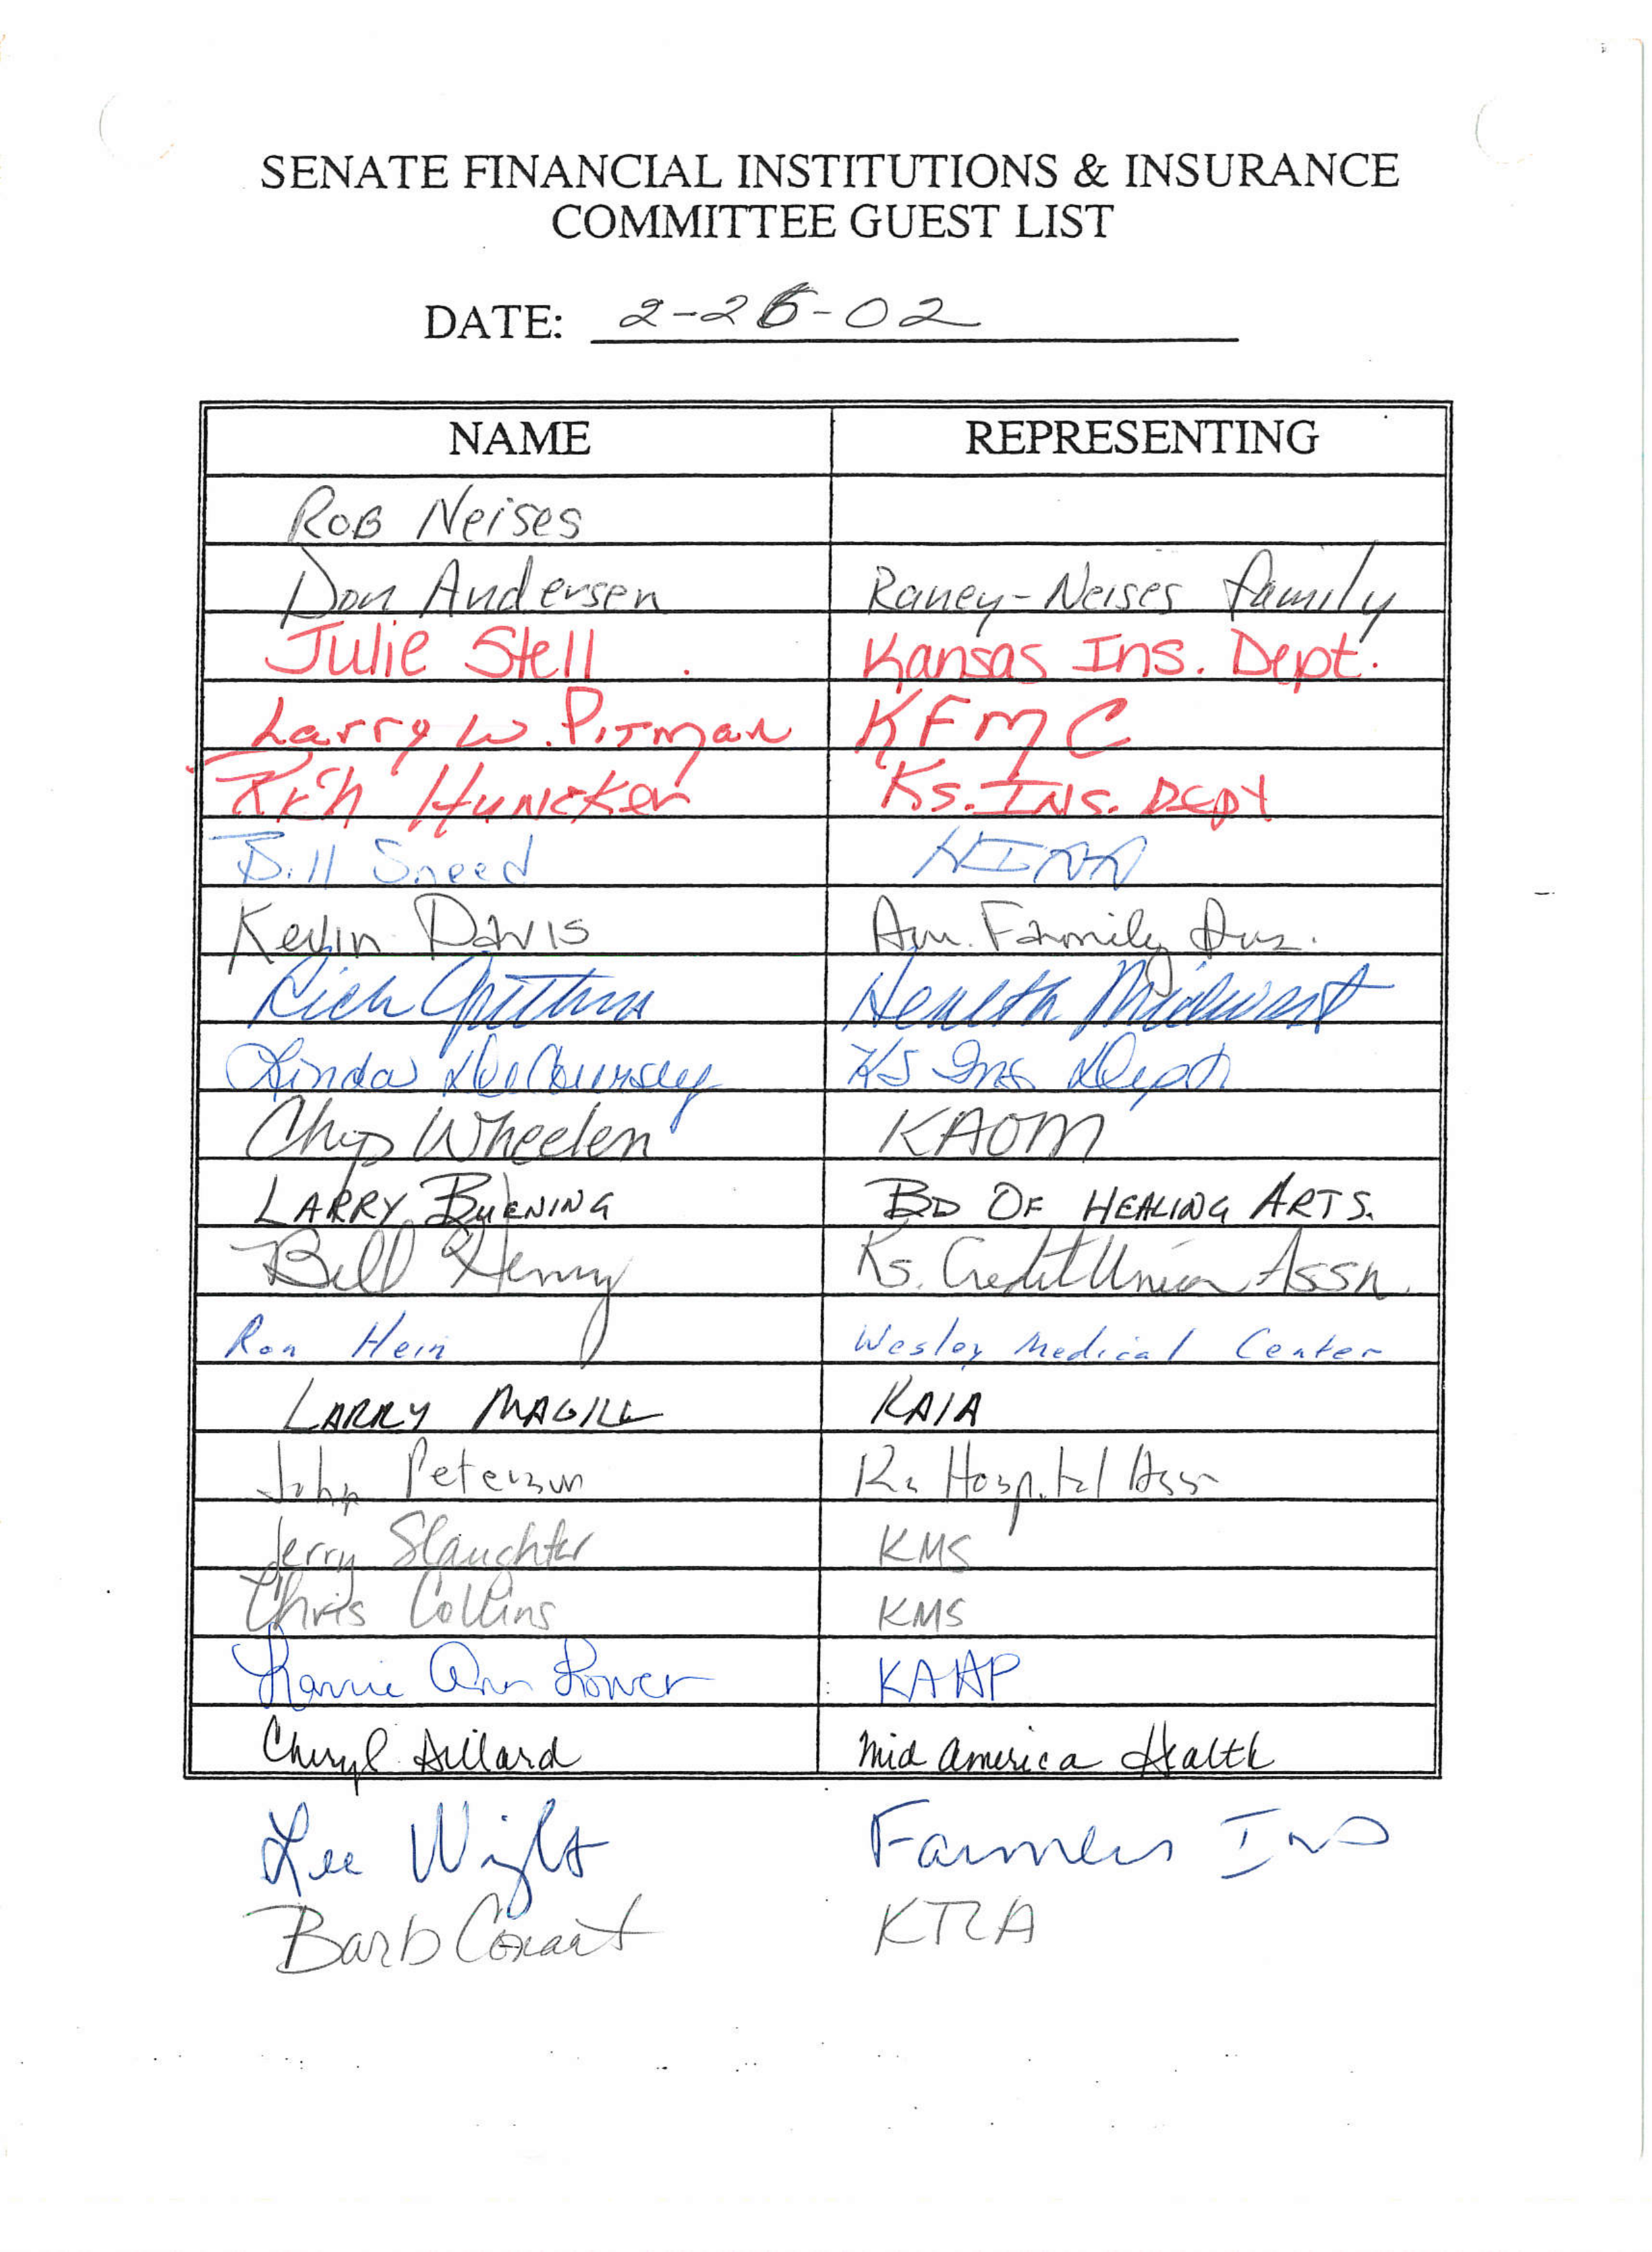 SENATE FINANCIAL INSTITUTIONS & INSURANCE
COMMITTEE GUEST LIST
DATE: 2-26-02
NAME REPRESENTING
Rob Neises
Don Andersen Raney-Neises family
Julie Stell Kansas Ins. Dept.
Larry W. Pitman KFMC
Rich Hunicker Ks. INS. Dept
Bill Sneed HIAA
Kevin Davis Am. Family Ins.
Rich Health Midwest
Linda De Coursey KS Ins Dept
Chip Wheelen KAOM
LARRY BUENING BD OF HEALING ARTS.
Bill Henry Ks. Credit Union Assn.
Ron Hein Wesley Medical Center
LARRY MAGILL KAIA
John Peterson Ks Hospital Assn
Jerry Slaughter KMS
Chris Collins KMS
Larrie Ann Lower KAHP
Cheryl Dillard Mid America Health
Lee Wright Farmers Ins
Barb Conant KTLA